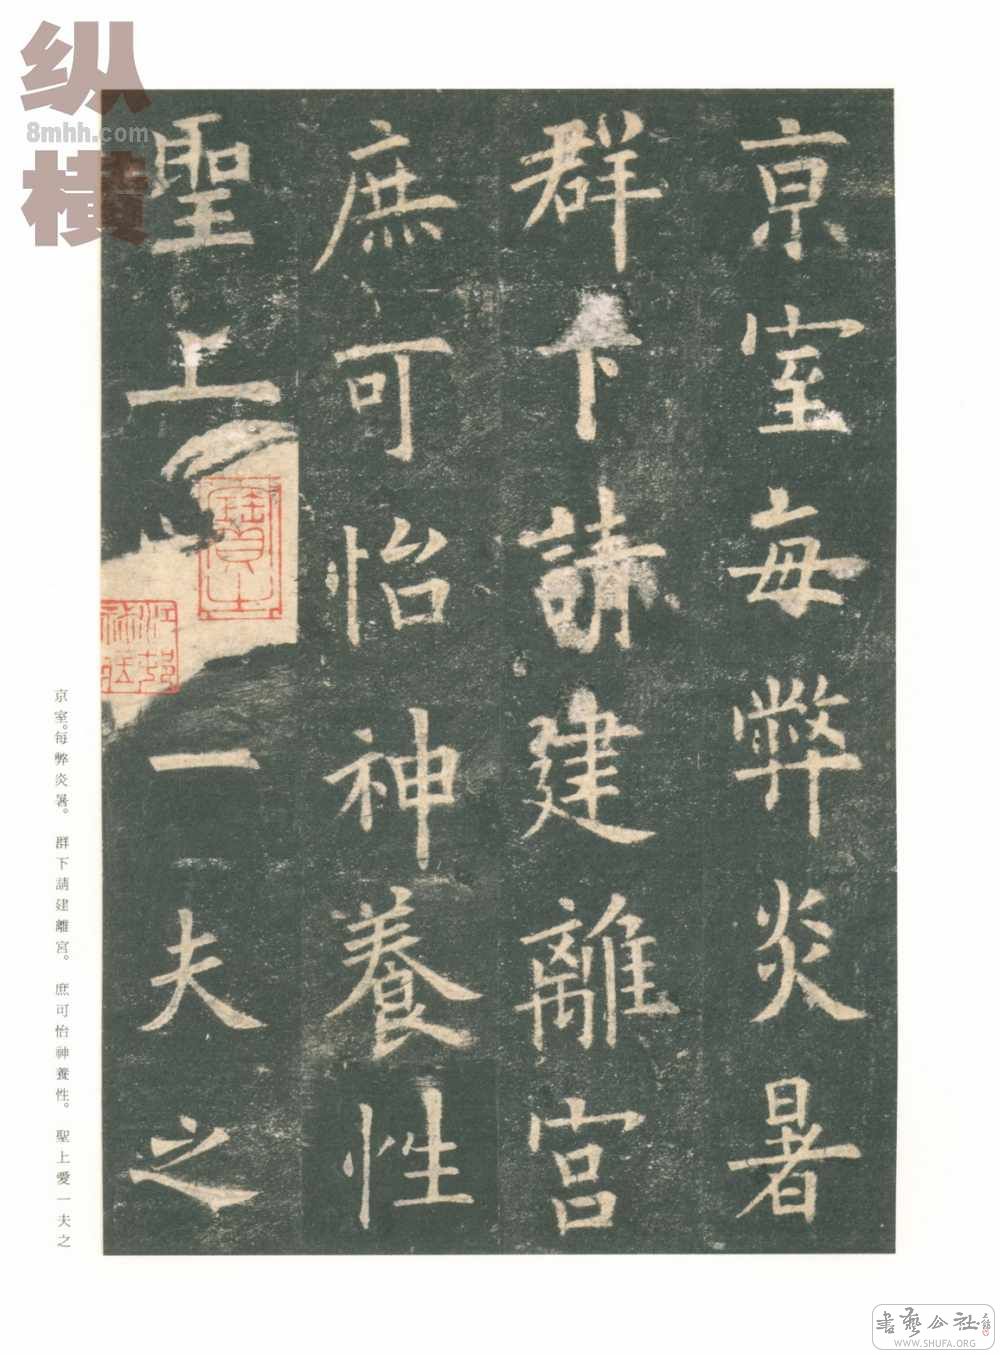 京室每弊炎暑
群下請建離宫
庶可怡神養性
聖上一夫之
京室。每弊炎暑。群下請建離宮。庶可怡神養性。聖上愛一夫之
纵横
8mhh.com
書藝公社
WWW.SHUFA.ORG